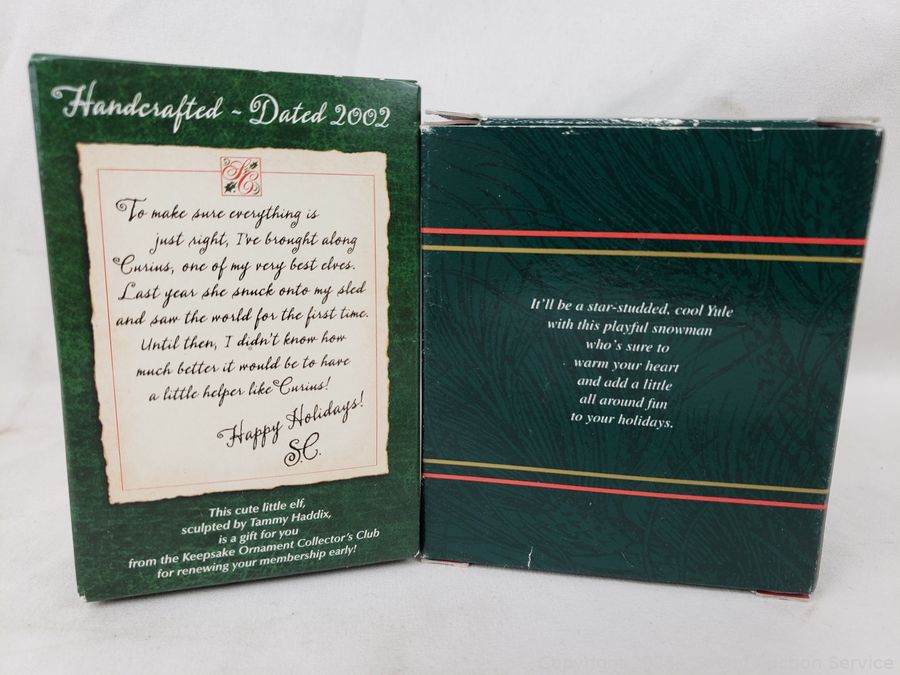 Handcrafted ~ Dated 2002
SC
To make sure everything is
just right, I've brought along
Curius, one of my very best elves.
Last year she snuck onto my sled
and saw the world for the first time.
Until then, I didn't know how
much better it would be to have
a little helper like Curius!
Happy Holidays!
S.C.
This cute little elf,
sculpted by Tammy Haddix,
is a gift for you
from the Keepsake Ornament Collector's Club
for renewing your membership early!
It'll be a star-studded, cool Yule
with this playful snowman
who's sure to
warm your heart
and add a little
all around fun
to your holidays.
Copyright Auction Service